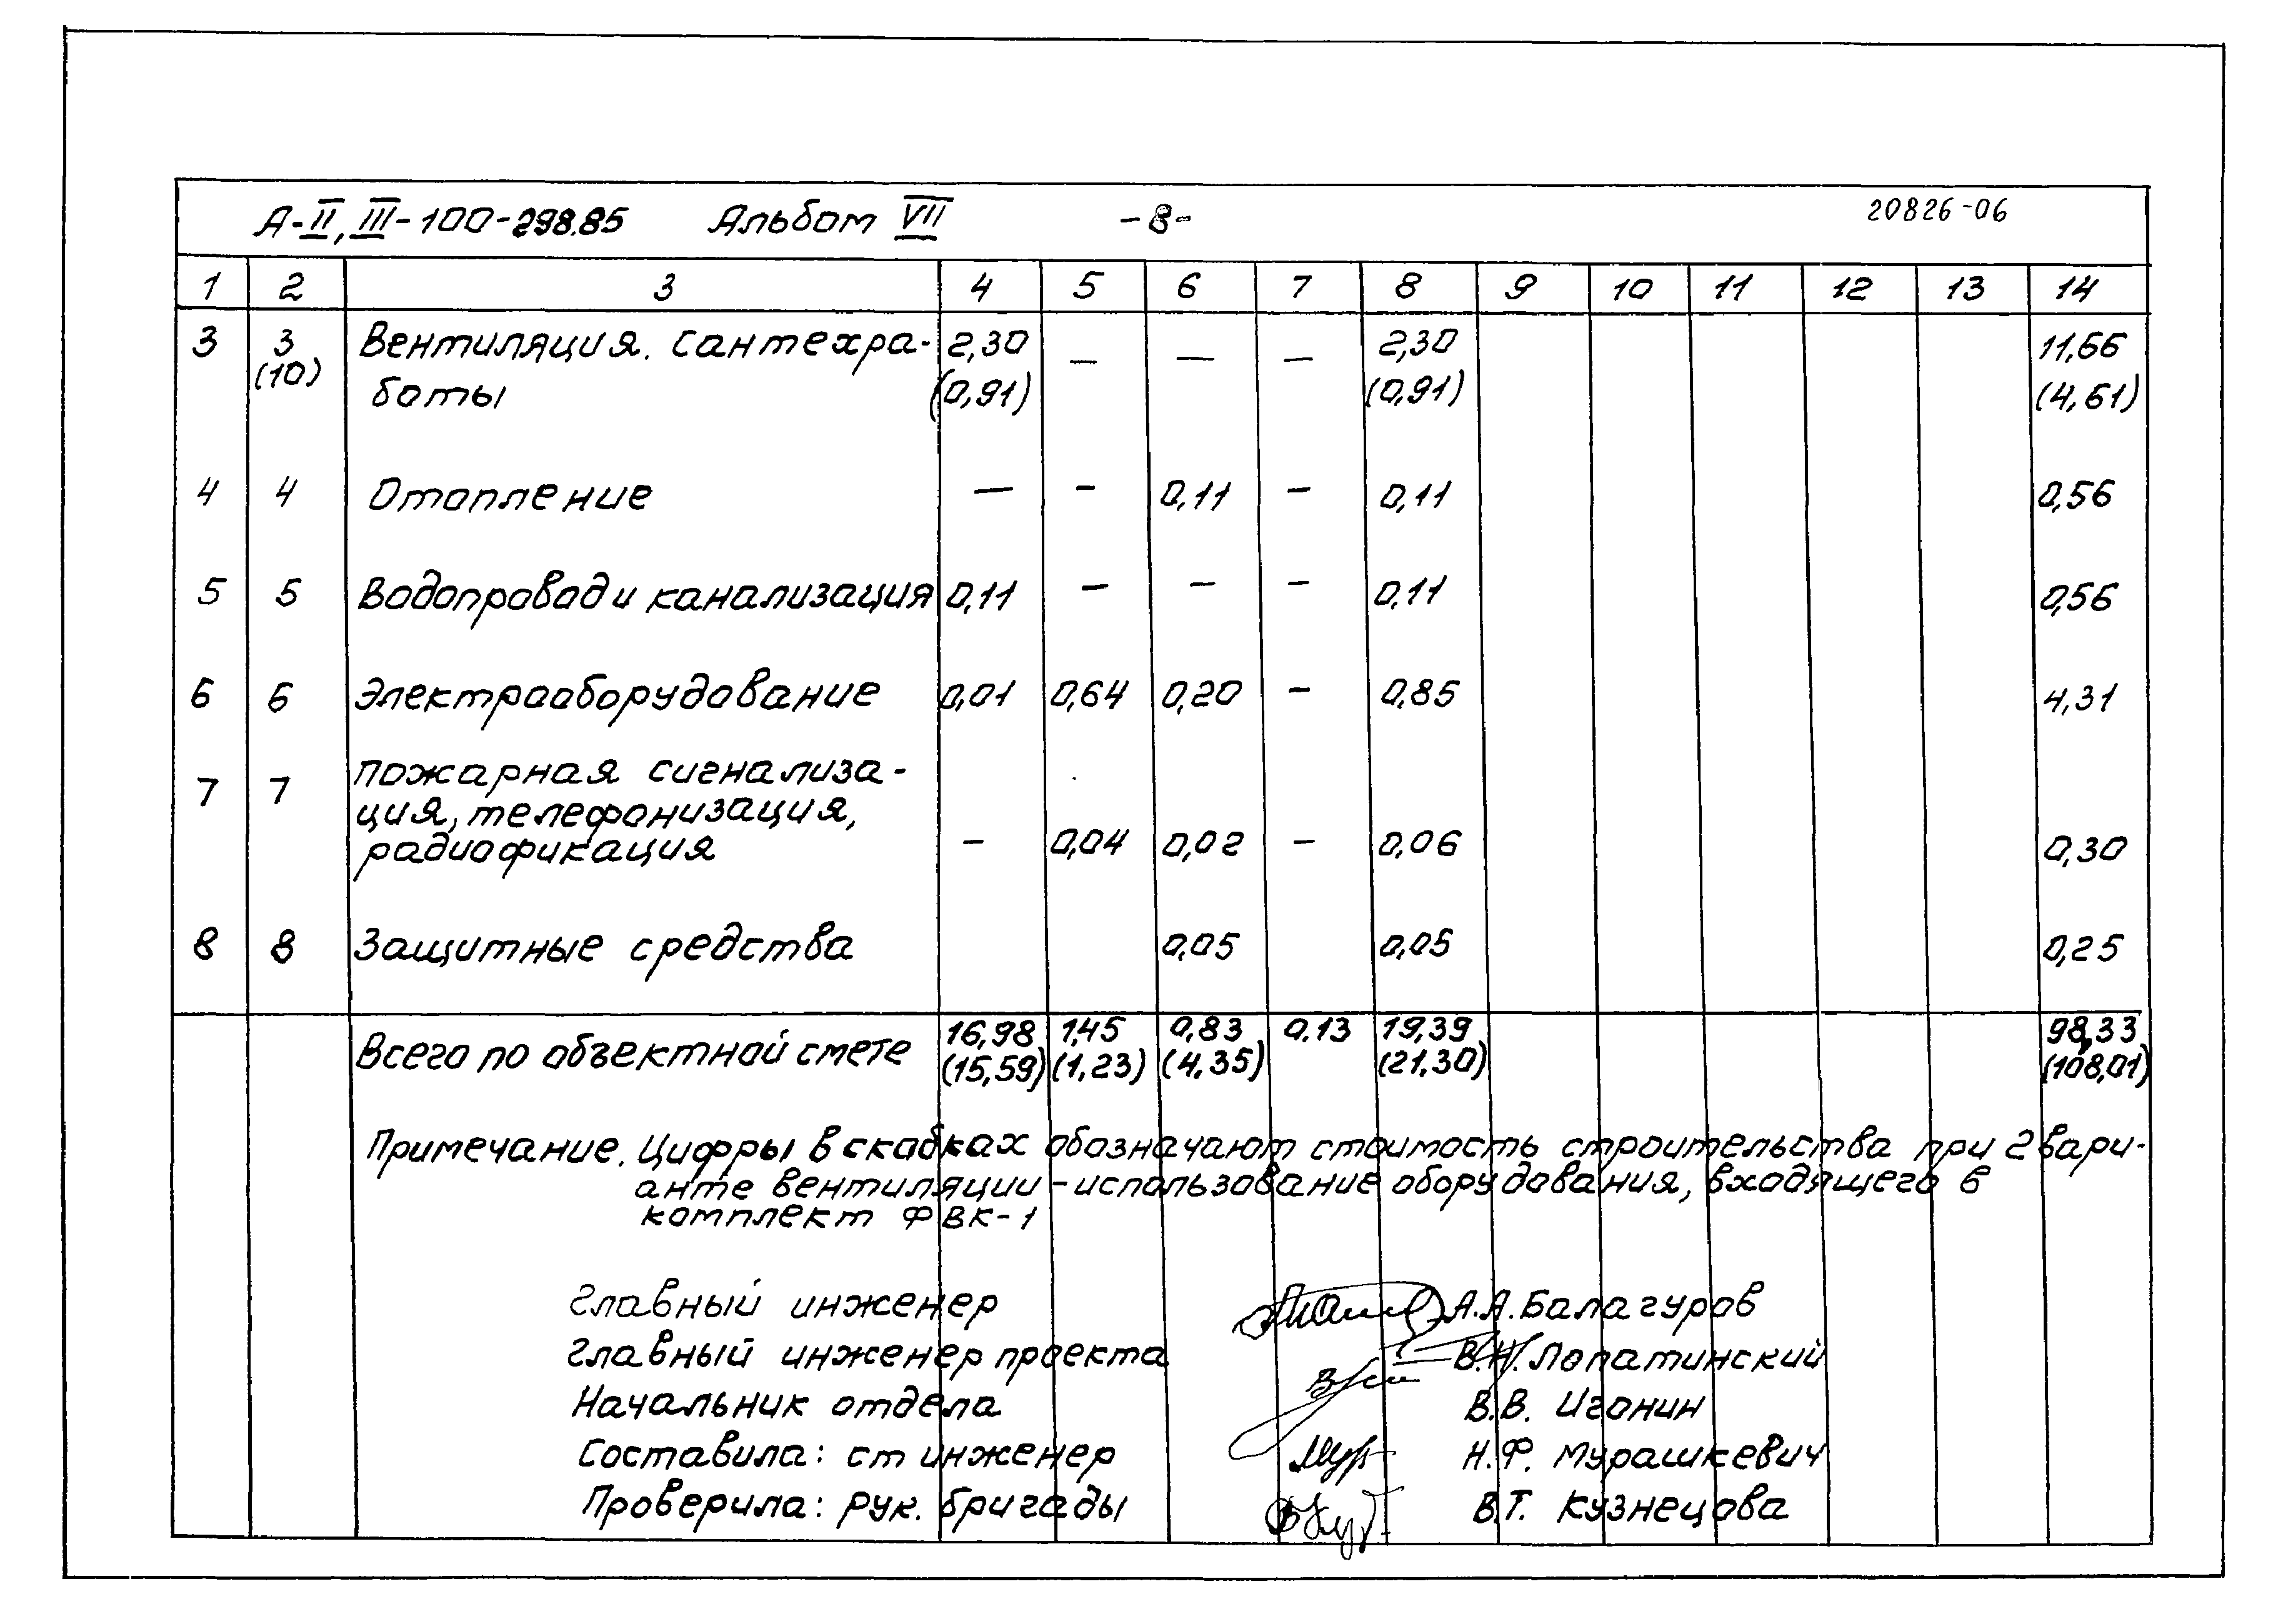 А-II, III-100-298.85 Альбом VII -8- 20826-06
1 2 3 4 5 6 7 8 9 10 11 12 13 14
3 3 Вентиляция. Сантехра- 2,30 — — — 2,30 11,66
(10) боты (0,91) (0,91) (4,61)
4 4 Отопление — - 0,11 - 0,11 0,56
5 5 Водопровод и канализация 0,11 - - - 0,11 0,56
6 6 Электрооборудование 0,01 0,64 0,20 - 0,85 4,31
7 7 Пожарная сигнализа-
ция, телефонизация,
радиофикация - 0,04 0,02 - 0,06 0,30
8 8 Защитные средства 0,05 0,05 0,25
Всего по объектной смете 16,98 1,45 0,83 0,13 19,39 98,33
(15,59) (1,23) (4,35) (21,30) (108,01)
Примечание. Цифры в скобках обозначают стоимость строительства при 2 вари-
анте вентиляции - использование оборудования, входящего в
комплект ФВК-1
Главный инженер А.А. Балагуров
Главный инженер проекта В.Н. Лопатинский
Начальник отдела В.В. Игонин
Составила: ст инженер Н.Ф. Мурашкевич
Проверила: рук. бригады В.Т. Кузнецова